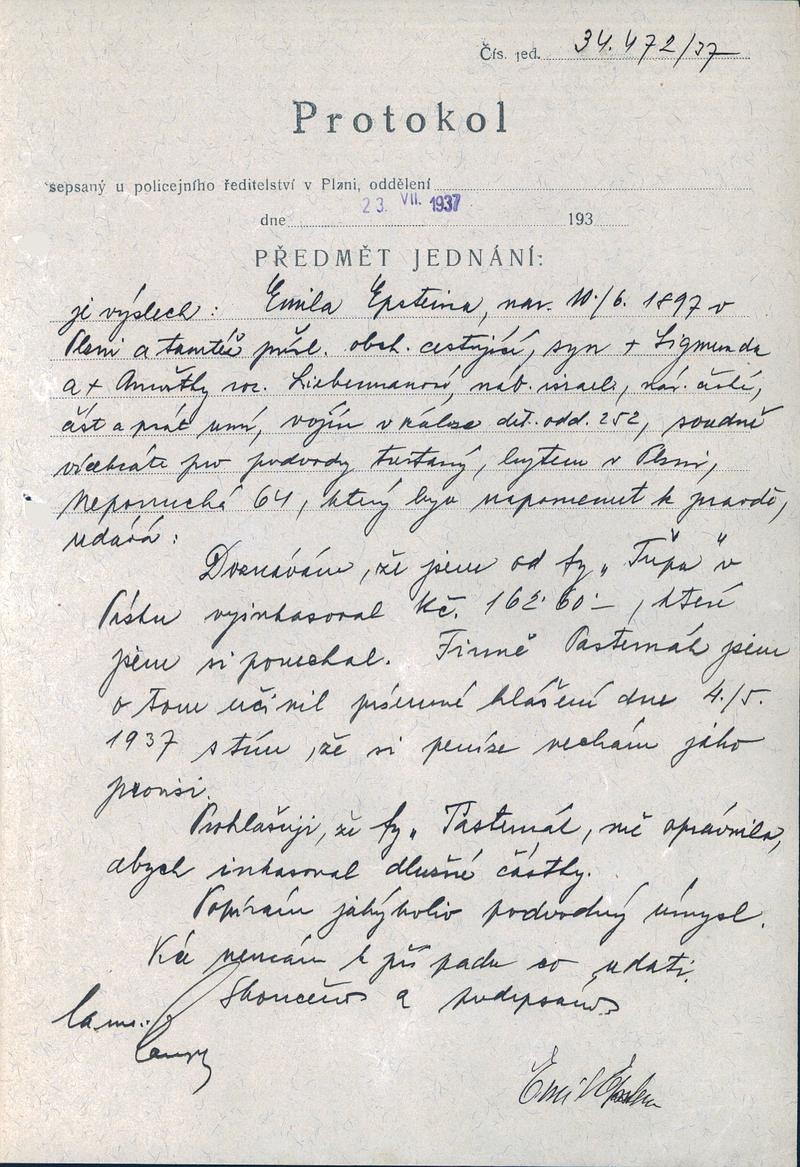 Čís. jed. 34.472/37
Protokol
sepsaný u policejního ředitelství v Plzni, oddělení
dne 23. VII. 1937 193
PŘEDMĚT JEDNÁNÍ:
je výslech: Emila Epsteina, nar. 10./6. 1897 v
Plzni a tamtéž přísl. obch. cestující, syn + Sigmunda
a + roz. Liebermanové, náb. israel., nár. české,
číst a psát umí, vojín v záloze děl. odd. 252, soudně
vícekráte pro podvody trestaný, bytem v Plzni,
Nepomucká 64, který byv napomenut k pravdě,
udává:
Doznávám, že jsem od fy „Třípa" v
Písku vyinkasoval Kč. 162.60 –, které
jsem si ponechal. Firmě Pasternák jsem
o tom učinil písemné hlášení dne 4./5.
1937 s tím, že si peníze nechám jako
provisi.
Prohlašuji, že fy „Pasternák, mě oprávnila,
abych inkasoval dlužné částky.
Popírám jakýkoliv podvodný úmysl.
Více nemám k případu co udati.
Skončeno a podepsáno.
Emil Epstein